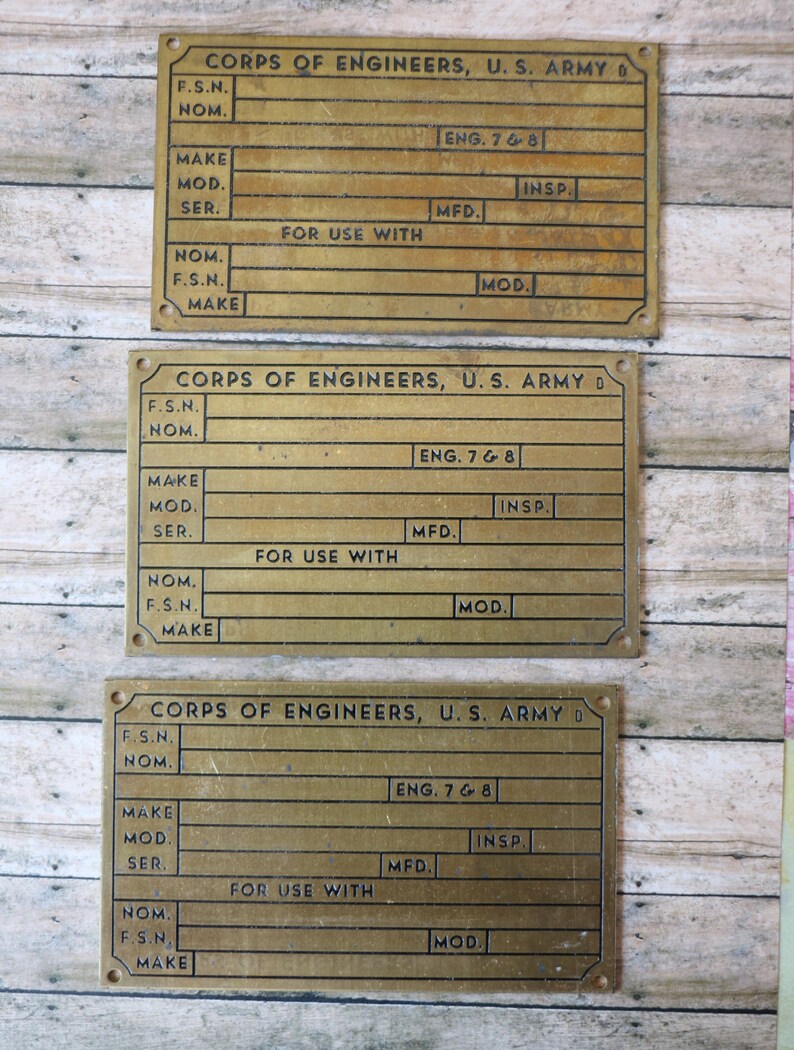 CORPS OF ENGINEERS, U. S. ARMY D
F.S.N.
NOM.
ENG. 7 & 8
MAKE
MOD. INSP.
SER. MFD.
FOR USE WITH
NOM.
F.S.N. MOD.
MAKE
CORPS OF ENGINEERS, U. S. ARMY D
F.S.N.
NOM.
ENG. 7 & 8
MAKE
MOD. INSP.
SER. MFD.
FOR USE WITH
NOM.
F.S.N. MOD.
MAKE
CORPS OF ENGINEERS, U. S. ARMY D
F.S.N.
NOM.
ENG. 7 & 8
MAKE
MOD. INSP.
SER. MFD.
FOR USE WITH
NOM.
F.S.N. MOD.
MAKE